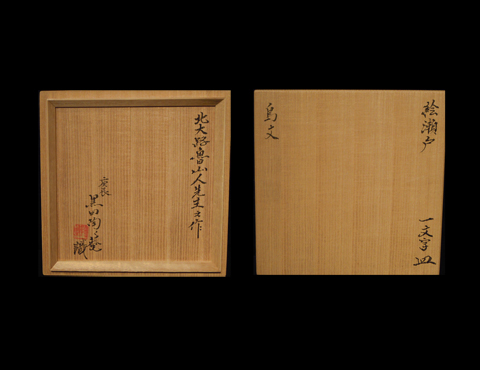 北大路魯山人先生之作
黒田陶々菴
識
絵瀬戸
一文字皿
鳥文